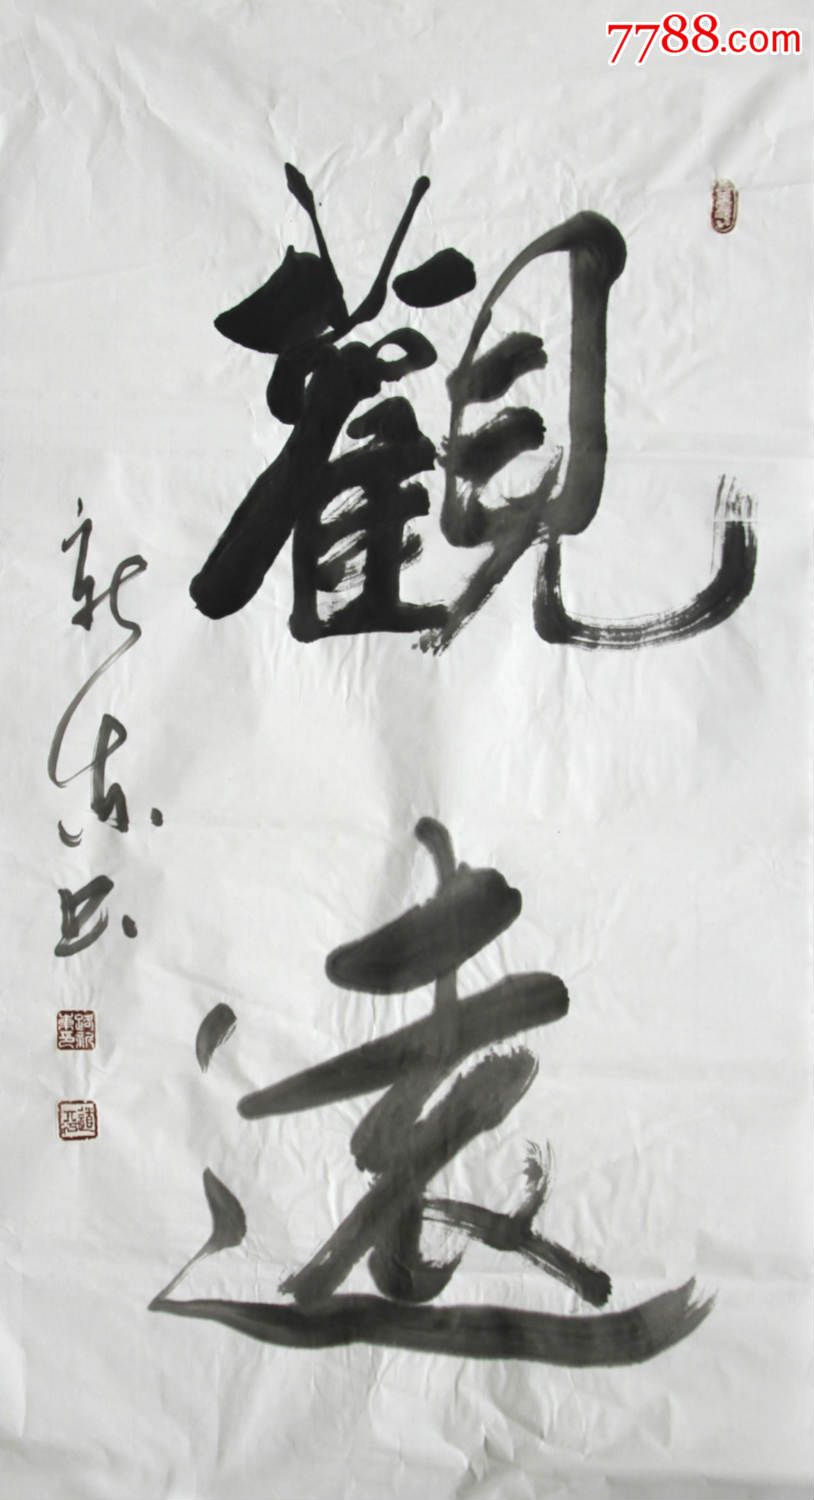 7788.com
觀遠
新东书